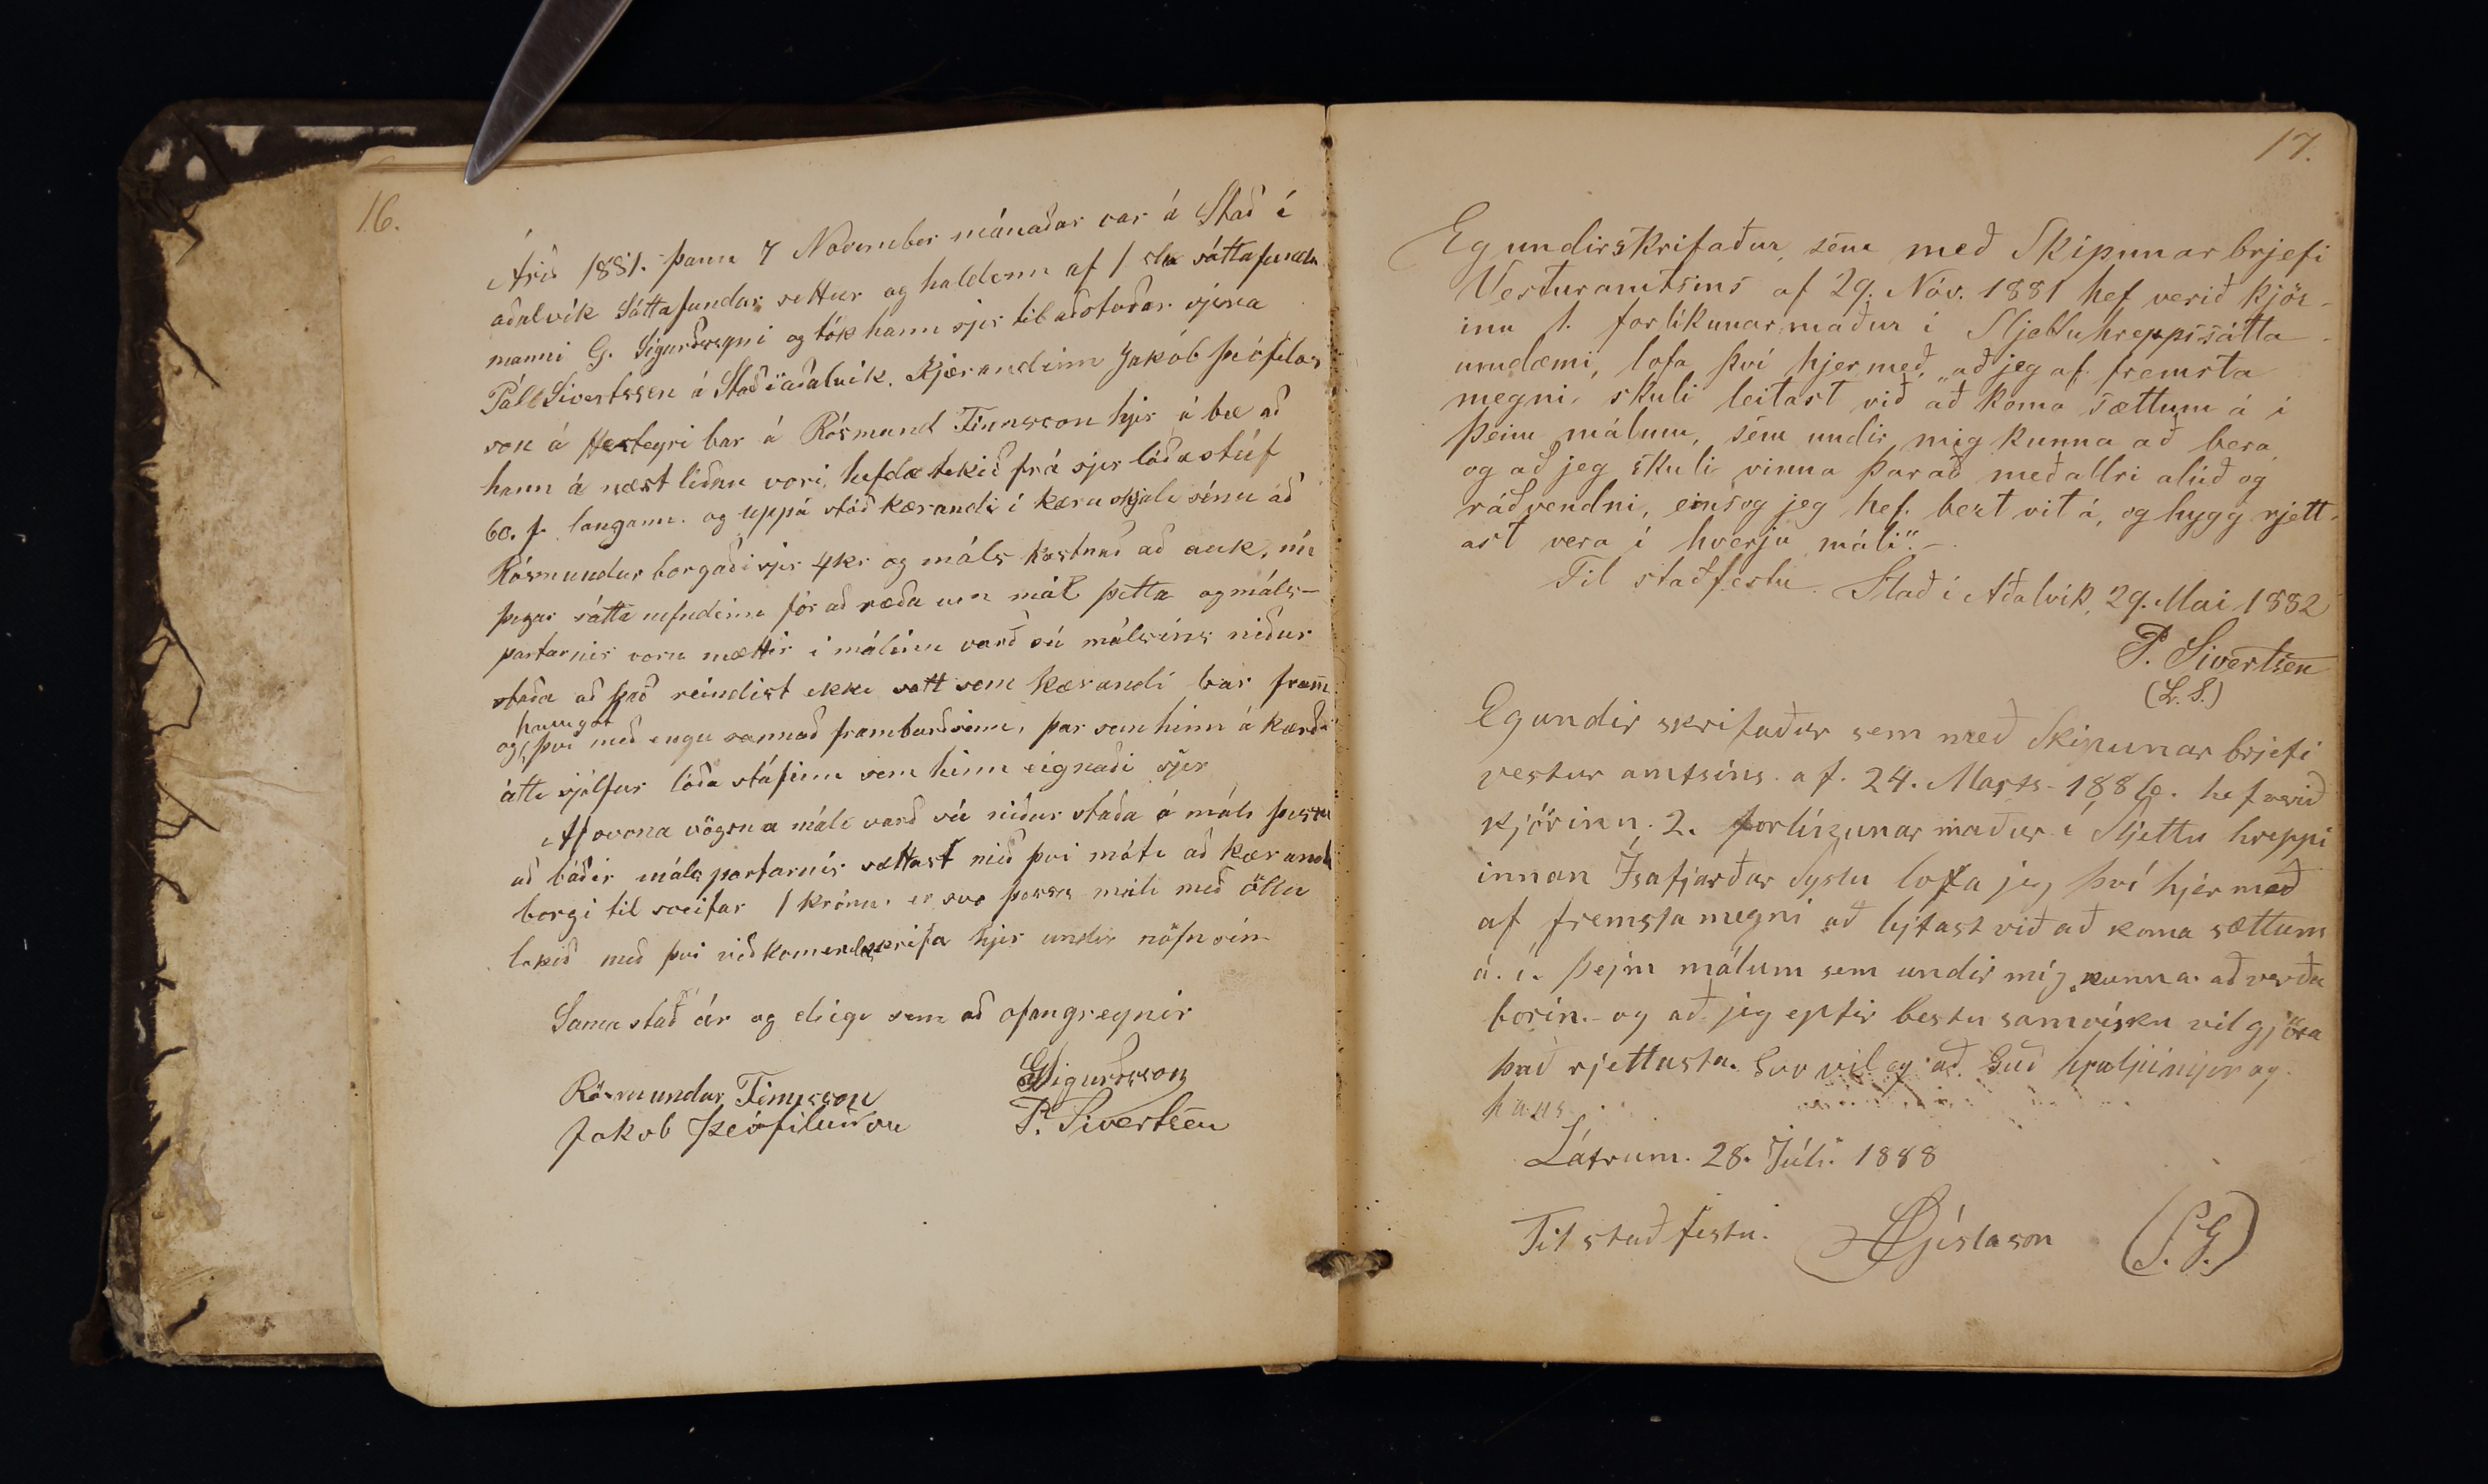 16.
Árið 1881. þann 7 November mánaðar var á Stað í
aðalvík Sáttafundur settur og haldenn af 1 sta sáttafunda
manni G. Sigurðssyni og tók hann sjer til aðstoðar sjera
Páll Sivertssen á Stað í aðalvik. Kjærandinn Jakób Þeófilus
son á Hesteyri bar á Rósmund Finnsson hjer á bæ að
hann á næst liðnu vori hefda tekið frá sjer lóðastúf
60. f. langann. og uppá stóð kærandi í kæru skjali sínu að
Rósmundur borgaði sjer 4 kr og máls kostnað að auk, nú
þegar sátta nefndinn fór að ræða um mál þetta og máls-
partarnir voru mættir i málinu varð sú málsins niður
staða að það reindist ekki satt sem kærandi bar fram
og því með engu sannað framburð sinn, þar sem hinn á kærði
átti sjálfur lóða stúfinn sem hinn eignaði sjer
Af ovona vögsna máli varð sú niður staða á máli þessu
að báðir máls partarnir sættast með því móti að kærandi
borgi til sveitar 1 krónu. er svo þessu máli með öllu
lokið með því viðkomendur skrifa hjer undir nöfn sín
Sama stað ár og deigi sem að ofangreynir
Rósmundur Finnsson GSigurðsson
Jakob Þeófilusson P. Sivertsen
17.
Eg undirskrifaður, sem með Skipunar brjefi
Vesturamtsins af 29. Nóv. 1881 hef verið kjör-
inn 1. forlíkunarmaður í Sljettuhreppssátta-
umdæmi, lofa því hjer með, "að jeg af fremsta
megni skuli leitast við að koma sættum á í
þeim málum, sem undir mig kunna að bera,
og að jeg skuli vinna þar að með allri alúð og
ráðvendni, einsog jeg hef bezt vit á, og hygg rjett-
ast vera í hverju máli".-
Til staðfestu. Stað í Aðalvík, 29. Mai 1882
P. Sivertsen
(L. S.)
Eg undir skrifaður sem með Skipunar brjefi
vestur amtsins af. 24. Marts. 1886. hef verið
kjörinn. 2. forlíkunar maður í Sljettu hreppi
innan Ísafjarðar Syslu lofa jeg því hjer með
af fremsta megni að lejtast við að koma sættum
á. í. þejm málum sem undir mig kunna að verða
borin. og að jeg eptir bestu samvisku vil gjöra
það rjettasta. Svo vil eg að Guð hjalpi mjer og
hans
Látrum. 28. Júli. 1888
Til staðfestu. Gíslason (S. G.)